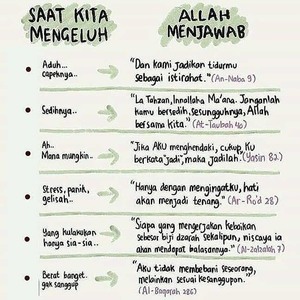 SAAT KITA
MENGELUH
ALLAH
MENJAWAB
Aduh...
capeknya..
"Dan kami jadikan tidurmu
sebagai istirahat." (An-Naba 9)
Sedihnya..
"La Tahzan, Innallaha Ma'ana. Janganlah
kamu bersedih, sesungguhnya, Allah
bersama kita." (At-Taubah 40)
Ah..
Mana mungkin..
"Jika AKU menghendaki, cukup Ku
berkata "jadi", maka jadilah. (Yasin 82)
Stress, panik,
gelisah..
"Hanya dengan mengingatku, hati
akan menjadi tenang." (Ar-Ro'd 28)
Yang kulakukan
hanya sia-sia...
"Siapa yang mengerjakan kebaikan
sebesar biji dzarah sekalipun, niscaya ia
akan mendapat balasannya." (Al-Zalzalah 7)
Berat banget.
gak sanggup
"Aku tidak membebani seseorang,
melainkan sesuai kesanggupan."
(Al-Baqarah 286)